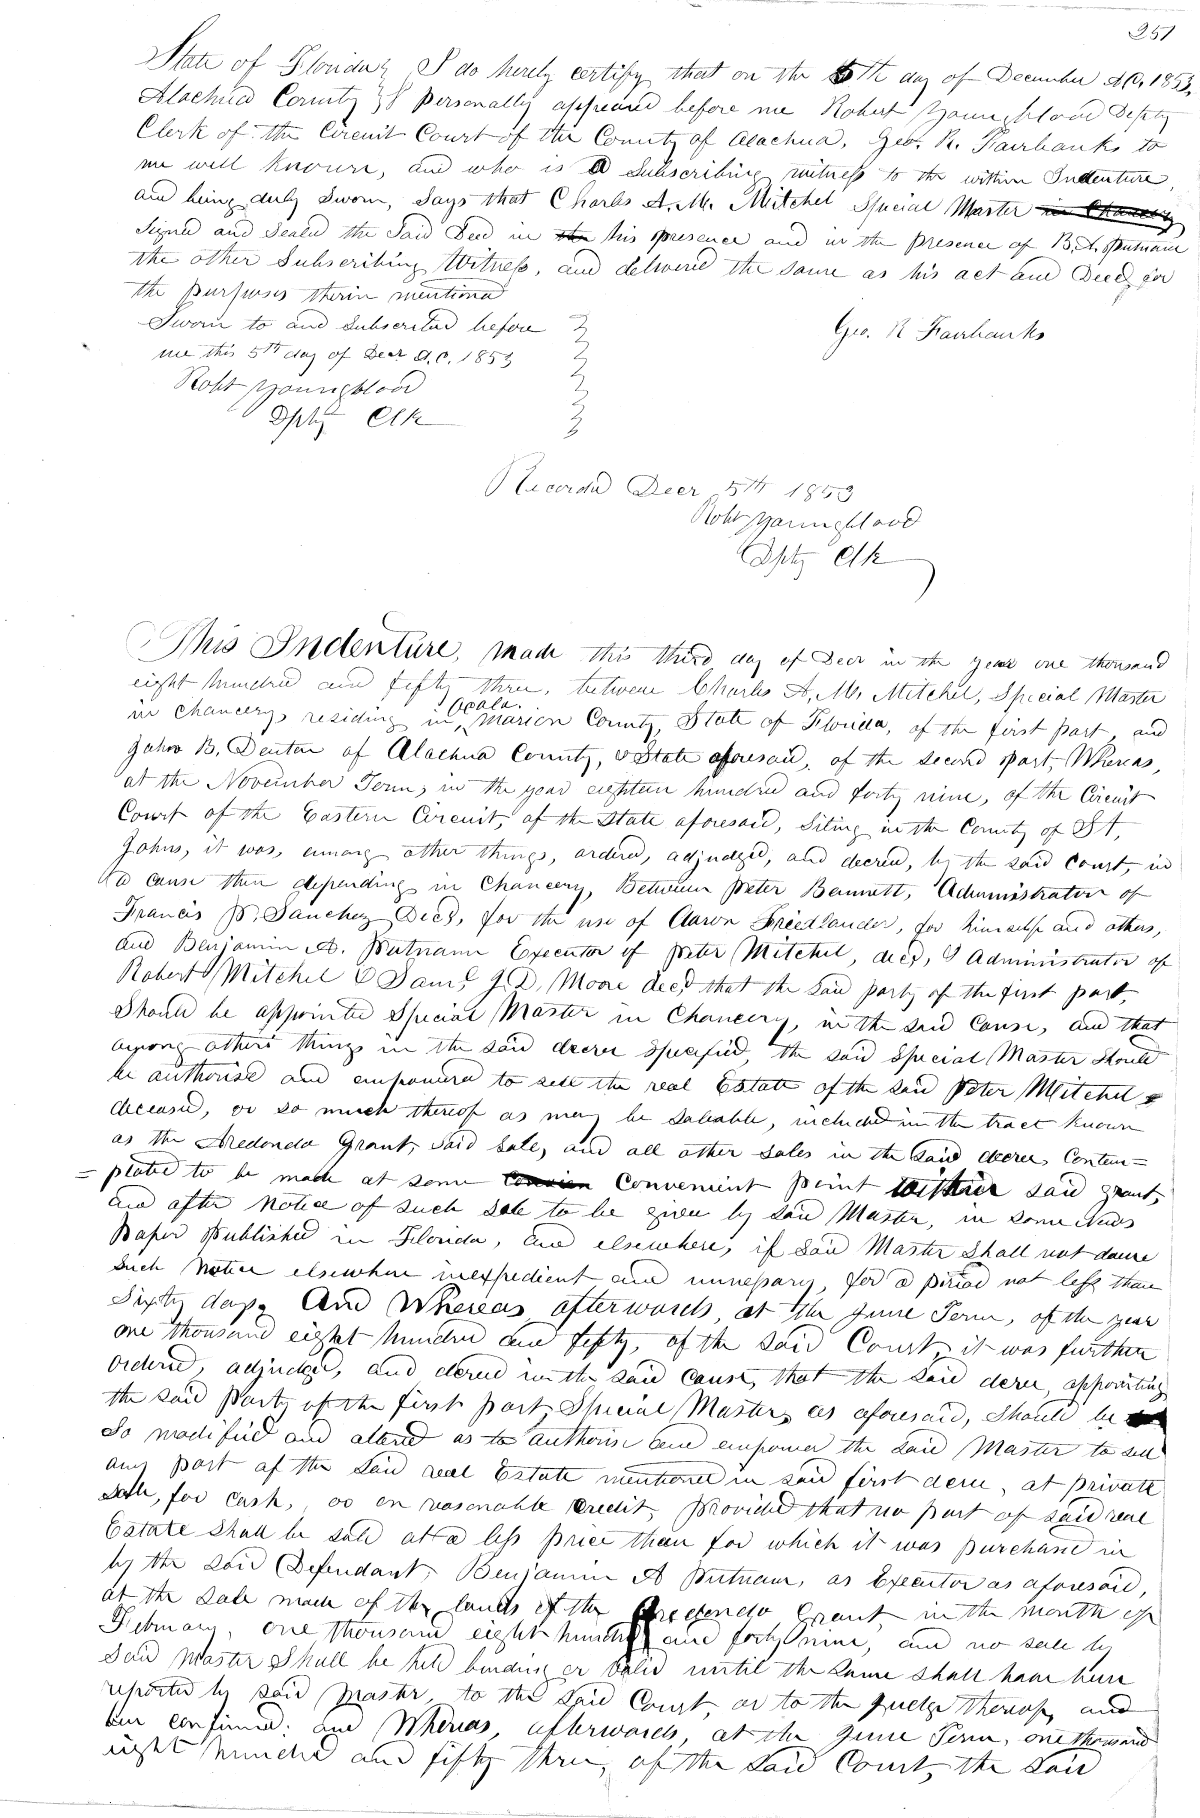 251
State of Florida } I do hereby certify that on the 5th day of December A.C. 1853,
Alachua County } personally appeared before me Robert Youngblood Depty
Clerk of the Circuit Court of the County of Alachua, Geo. R. Fairbanks to
me well known, and who is a Subscribing witness to the within Indenture,
and being duly Sworn, Says that Charles A. M. Mitchel Special Master in Chancery
Signed and Sealed the Said Deed in the his presence and in the presence of B. A. Putnam
the other Subscribing Witness, and delivered the same as his act and Deed for
the purposes therin mentioned
Sworn to and Subscribed before
Geo. R Fairbanks
me this 5th day of Decr A.C. 1853
Robt Youngblood
Dpty Clk
Recorded Decr 5th 1853
Robt Youngblood
Dpty Clk
This Indenture, made this third day of Decr in the year one thousand
eight hundred and fifty three, between Charles A. M. Mitchel, Special Master
in chancery, residing in Ocala, Marion County, State of Florida, of the first part, and
John B. Denton of Alachua County, & State aforesaid, of the second part, Whereas,
at the November Term, in the year eighteen hundred and forty nine, of the Circuit
Court of the Eastern Circuit, of the State aforesaid, Siting in the County of St.
Johns, it was, among other things, ordered, adjudged, and decreed, by the said Court, in
a cause then depending in Chancery, Between Peter Bannett, Administrator of
Francis P. Sanchez Decd, for the use of Aaron Friedlander, for himself and others,
and Benjamin A. Putnam Executor of Peter Mitchel, decd, & Administrator of
Robert Mitchel & Saml J. D. Moore decd that the said party of the first part,
Should be appointed Special Master in Chancery, in the said Cause, and that
among others things in the said decree specified, the said Special Master Should
be authorise and empowered to sell the real Estate of the said Peter Mitchel
deceased, or so much thereof as may be Saleable, included in the tract known
as the Aredondo Grant, said sale, and all other sales in the said decree, Contem=
=plated to be made at some Convenient point within said grant,
and after Notice of such sale to be given by said Master, in some News
Paper Published in Florida, and elsewhere, if said Master shall not deem
such Notice elsewhere inexpedient and unnessary, for a period not less than
Sixty days. And Whereas, afterwards, at the June Term, of the year
one thousand eight hundred and fifty, of the said Court, it was further
ordered, adjudged, and decreed in the said cause, that the said decree, appointing
the said Party of the first part, Special Master, as aforesaid, should be
So modified and altered as to authorise and empower the said Master to sell
any part of the said real Estate mentioned in said first decree, at private
Sale, for cash, or on reasonable credit, provided that no part of said real
Estate shall be sold at a less price than for which it was purchased in
by the said Defendant, Benjamin A Putnam, as Executor as aforesaid,
at the sale made of the lands of the Aredondo Grant in the month of
February, one thousand eight hundred and forty nine, and no sale by
Said Master Shall be held binding or valid until the same shall have been
reported by said Master, to the said Court, or to the Judge thereof, and
been confirmed. and Whereas, afterwards, at the June Term, one thousand
eight hundred and fifty three, of the said Court, the said